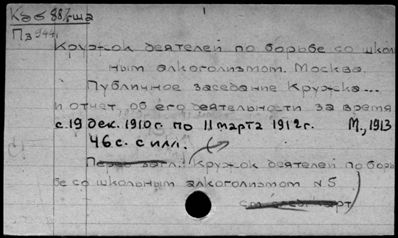 Каб 88/7ша
Пз 344
Кружок деятелей по борьбе со школ
ьным алкоголизмом. Москва.
Публичное заседание Кружка...
и отчет об его деятельности за время
с 19 дек. 1910г. по 11 марта 1912г. М., 1913
46 с. с илл.
Перед загл.: Кружок деятелей по борь
бе со школьным алкоголизмом №5